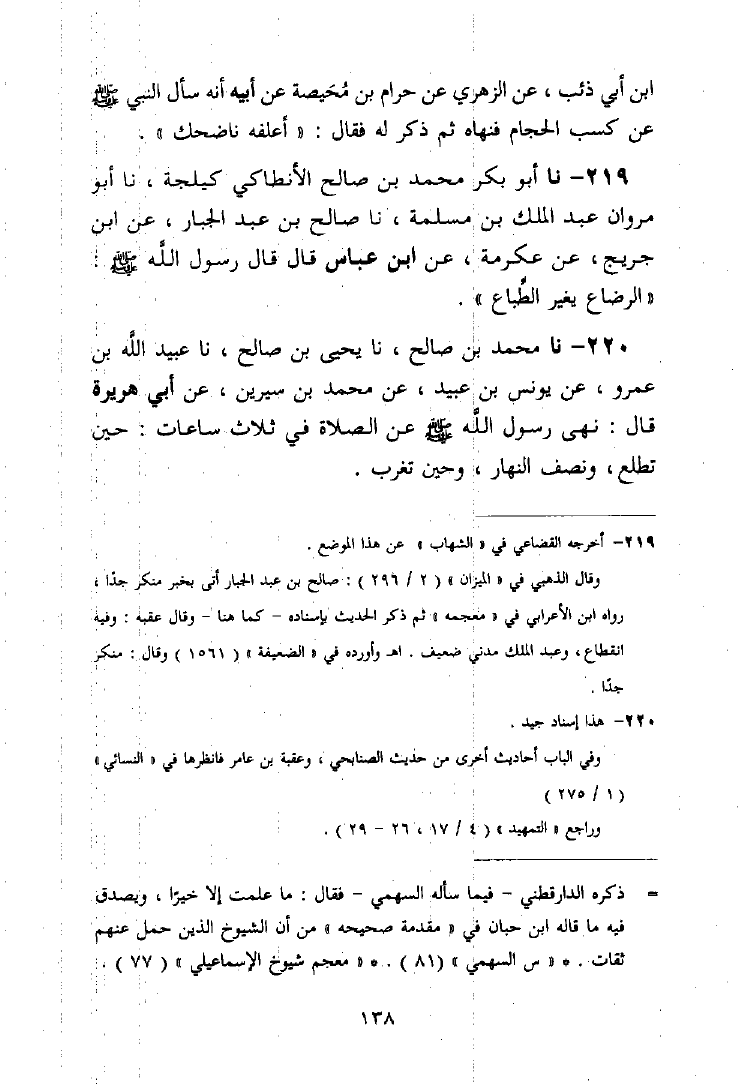 ابن أبي ذئب ، عن الزهري عن حرام بن مُحَيصة عن أبيه أنه سأل النبي ﷺ
عن كسب الحجام فنهاه ثم ذكر له فقال : « أعلفه ناضحك » .
٢١٩- نا أبو بكر محمد بن صالح الأنطاكي كيلجة ، نا أبو
مروان عبد الملك بن مسلمة ، نا صالح بن عبد الجبار ، عن ابن
جريج ، عن عكرمة ، عن ابن عباس قال قال رسول اللَّه ﷺ :
« الرضاع يغير الطِّباع » .
٢٢٠- نا محمد بن صالح ، نا يحيى بن صالح ، نا عبيد اللَّه بن
عمرو ، عن يونس بن عبيد ، عن محمد بن سيرين ، عن أبي هريرة
قال : نهى رسول اللَّه ﷺ عن الصلاة في ثلاث ساعات : حين
تطلع ، ونصف النهار ، وحين تغرب .
٢١٩- أخرجه القضاعي في « الشهاب » عن هذا الموضع .
وقال الذهبي في « الميزان » ( ٢ / ٢٩٦ ) : صالح بن عبد الجبار أتى بخبر منكر جدًا ،
رواه ابن الأعرابي في « معجمه » ثم ذكر الحديث بإسناده - كما هنا - وقال عقبه : وفيه
انقطاع ، وعبد الملك مدني ضعيف . اهـ وأورده في « الضعيفة » ( ١٥٦١ ) وقال : منكر
جدًا .
٢٢٠- هذا إسناد جيد .
وفي الباب أحاديث أخرى من حديث الصنابحي ، وعقبة بن عامر فانظرها في « النسائي »
( ١ / ٢٧٥ )
وراجع « التمهيد » ( ٤ / ١٧ ، ٢٦ - ٢٩ ) .
= ذكره الدارقطني - فيما سأله السهمي - فقال : ما علمت إلا خيرًا ، ويصدق
فيه ما قاله ابن حبان في « مقدمة صحيحه » من أن الشيوخ الذين حمل عنهم
ثقات . * « س السهمي » (٨١ ) . * « معجم شيوخ الإسماعيلي » ( ٧٧ ) .
١٣٨